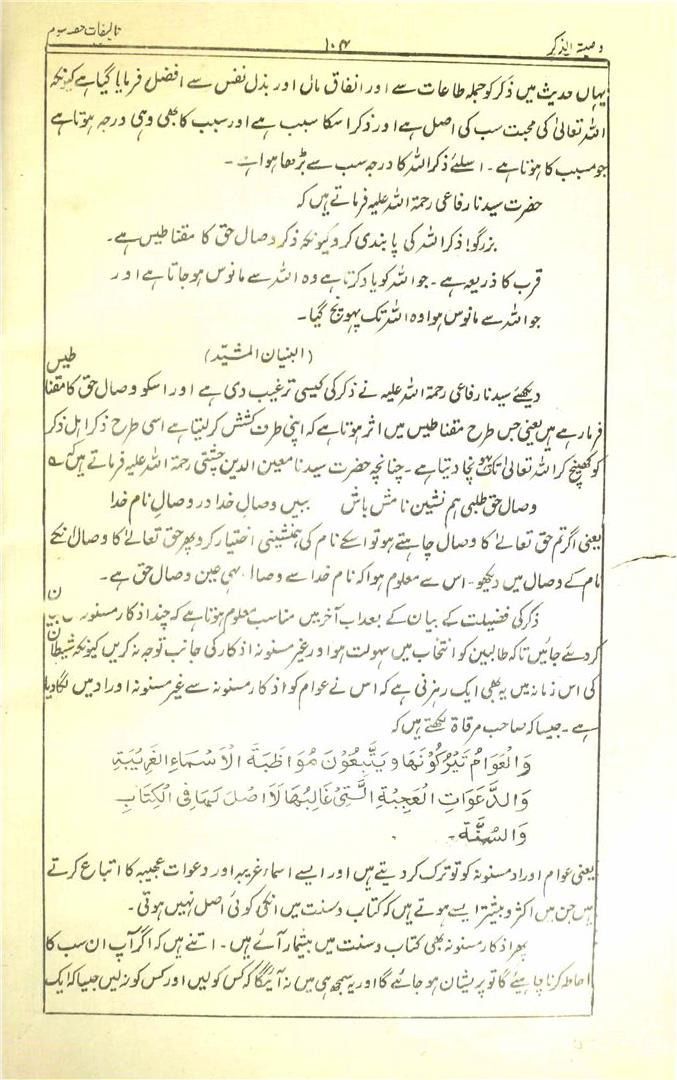 وصیۃ الذکر ۱۰۴ تالیفات حصہ سوم
یہاں حدیث میں ذکر کو جملہ طاعات سے اور انفاق مال اور بذل نفس سے افضل فرمایا گیا ہے کیونکہ
اللہ تعالیٰ کی محبت سب کی اصل ہے اور ذکر اسکا سبب ہے اور سبب کا بھی وہی درجہ ہوتا ہے
جو مسبب کا ہوتا ہے۔ اسلئے ذکر اللہ کا درجہ سب سے بڑھا ہوا ہے۔
حضرت سیدنا رفاعی رحمۃ اللہ علیہ فرماتے ہیں کہ
بزرگو! ذکر اللہ کی پابندی کرو کیونکہ ذکر وصال حق کا مقناطیس ہے۔
قرب کا ذریعہ ہے۔ جو اللہ کو یاد کرتا ہے وہ اللہ سے مانوس ہو جاتا ہے اور
جو اللہ سے مانوس ہوا وہ اللہ تک پہونچ گیا۔
(البنیان المشیّد)
دیکھئے سیدنا رفاعی رحمۃ اللہ علیہ نے ذکر کی کیسی ترغیب دی ہے اور اسکو وصال حق کا مقناطیس
فرما رہے ہیں یعنی جس طرح مقناطیس میں اثر ہوتا ہے کہ اپنی طرف کشش کر لیتا ہے اسی طرح ذکر اہل ذکر
کو کھینچ کر اللہ تعالیٰ تک پہونچا دیتا ہے۔ چنانچہ حضرت سیدنا معین الدین چشتی رحمۃ اللہ علیہ فرماتے ہیں کہ ؎
وصال حق طلبی ہم نشین نامش باش ببیں وصالِ خدا در وصالِ نام خدا
یعنی اگر تم حق تعالےٰ کا وصال چاہتے ہو تو اسکے نام کی ہمنشینی اختیار کرو پھر حق تعالےٰ کا وصال انکے
نام کے وصال میں دیکھو۔ اس سے معلوم ہوا کہ نام خدا سے وصال بھی عین وصال حق ہے۔
ذکر کی فضیلت کے بیان کے بعد اب آخر میں مناسب معلوم ہوتا ہے کہ چند اذکار مسنونہ بیان
کر دیئے جائیں تاکہ طالبین کو انتخاب میں سہولت ہو اور غیر مسنونہ اذکار کی جانب توجہ نہ کریں کیونکہ شیطان
کی اس زمانہ میں یہ بھی ایک رہزنی ہے کہ اس نے عوام کو اذکار مسنونہ سے غیر مسنونہ اوراد میں لگا دیا
ہے۔ جیسا کہ صاحب مرقاۃ لکھتے ہیں کہ
وَالْعَوَامُّ يَتْرُكُوْنَهَا وَيَتَّبِعُوْنَ مُوَاظَبَةَ الْاَسْمَاءِ الْغَرِيْبَةِ
وَالدَّعَوَاتِ الْعَجِيْبَةِ الَّتِيْ غَالِبُهَا لَا اَصْلَ لَهَا فِي الْكِتَابِ
وَالسُّنَّةِ۔
یعنی عوام اوراد مسنونہ کو تو ترک کر دیتے ہیں اور ایسے اسماء غریبہ اور دعوات عجیبہ کا اتباع کرتے
ہیں جن میں اکثر و بیشتر ایسے ہوتے ہیں کہ کتاب و سنت میں انکی کوئی اصل نہیں ہوتی۔
پھر اذکار مسنونہ بھی کتاب و سنت میں بیشمار آئے ہیں۔ اتنے ہیں کہ اگر آپ ان سب کا
احاطہ کرنا چاہیئے گا تو پریشان ہو جائیے گا اور یہ سمجھ ہی میں نہ آئیگا کہ کس کو لیں اور کس کو نہ لیں جیسا کہ ایک